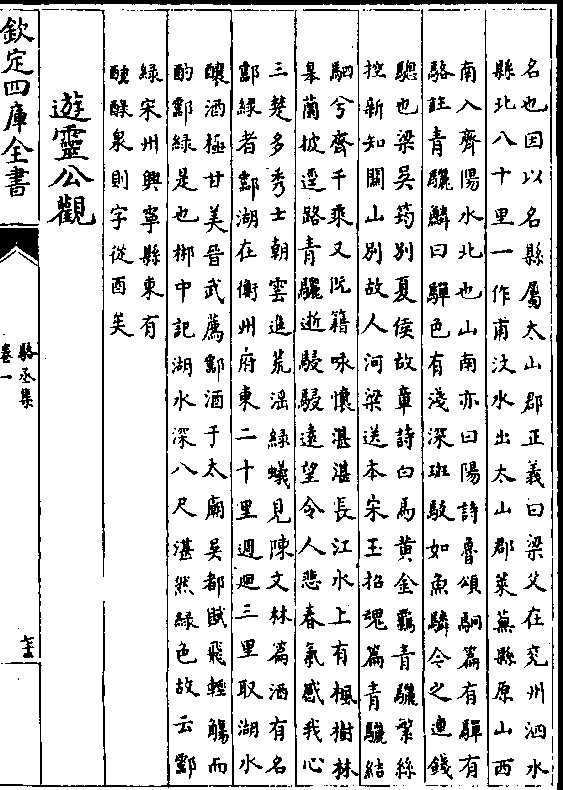 名也因以名縣屬太山郡正義曰梁父在兖州泗水
縣北八十里一作甫汶水出太山郡萊蕪縣原山西
南入齊陽水北也山南亦曰陽詩魯頌駉篇有驒有
駱註青驪驎曰驒色有淺深班駮如魚鱗令之連錢
驄也梁吳筠别夏侯故章詩白馬黃金羈青驪繁絲
控新知關山别故人河梁送本宋玉招魂篇青驪結
駟兮齊千乘又阮籍咏懷湛湛長江水上有楓樹林
臯蘭披逕路青驪逝駸駸遠望令人悲春氣感我心
三楚多秀士朝雲進荒滛綠蟻見陳文林篇酒有名
酃綠者酃湖在衡州府東二十里週迴三里取湖水
釀酒極甘美晉武薦酃酒于太廟吳都賦飛輕觴而
酌酃綠是也郴中記湖水深八尺湛然綠色故云酃
綠宋州興寧縣東有
醽醁泉則字從酉矣
遊靈公觀
欽定四庫全書
駱丞集
卷一